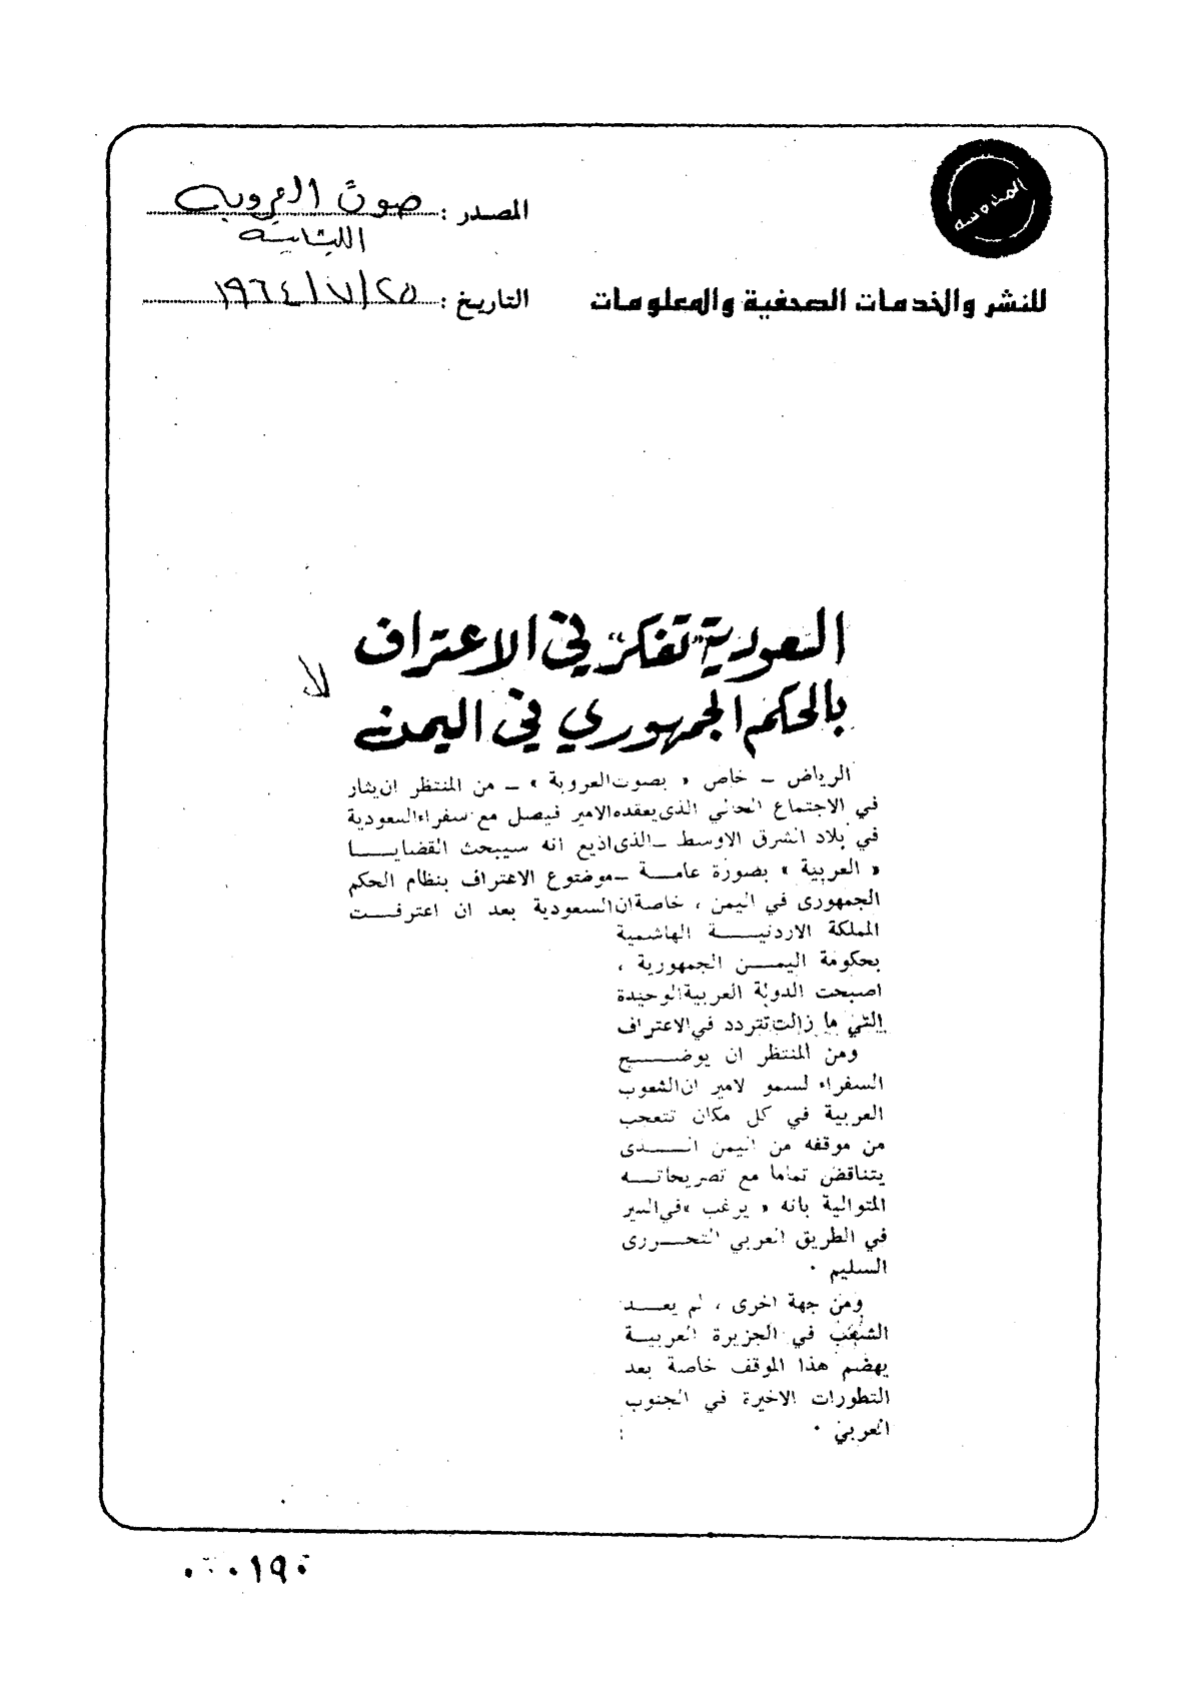 المصدر : صوت العروبه
اللبنانيه
التاريخ : ٢٥/٧/١٩٦٤
للنشر والخدمات الصحفية والمعلومات
السعودية "تفكر" في الاعتراف
بالحكم الجمهوري في اليمن
الرياض – خاص « بصوت العروبة » – من المنتظر ان يثار
في الاجتماع الحالي الذى يعقده الامير فيصل مع سفراء السعودية
في بلاد الشرق الاوسط – الذى اذيع انه سيبحث القضايا
« العربية » بصورة عامة – موضوع الاعتراف بنظام الحكم
الجمهورى في اليمن ، خاصة ان السعودية بعد ان اعترفت
المملكة الاردنية الهاشمية
بحكومة اليمن الجمهورية ،
اصبحت الدولة العربية الوحيدة
التي ما زالت تتردد في الاعتراف
ومن المنتظر ان يوضح
السفراء لسمو لامير ان الشعوب
العربية في كل مكان تتعجب
من موقفه من اليمن الذى
يتناقض تماما مع تصريحاته
المتوالية بانه « يرغب » في السير
في الطريق العربي التحررى
السليم .
ومن جهة اخرى ، لم يعد
الشعب في الجزيرة العربية
يهضم هذا الموقف خاصة بعد
التطورات الاخيرة في الجنوب
العربي .